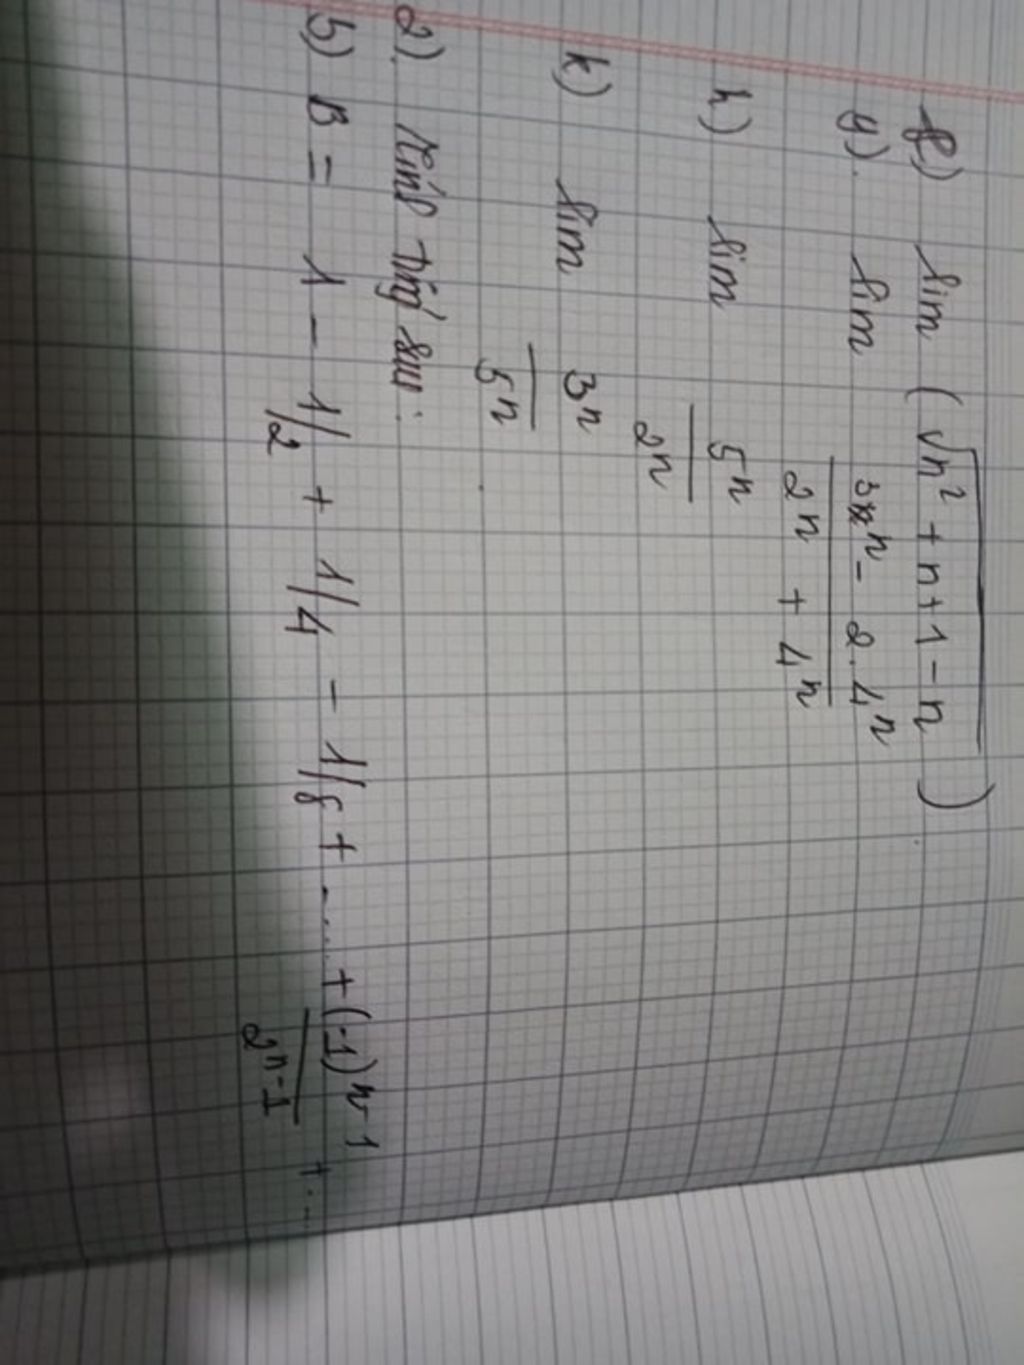 f) lim (√n² + n + 1 - n)
g). lim 3ⁿ - 2.4ⁿ / 2ⁿ + 4ⁿ
h) lim 5ⁿ / 2ⁿ
k) lim 3ⁿ / 5ⁿ
2). Tính tổng sau:
b) B = 1 - 1/2 + 1/4 - 1/8 + .... + (-1)ⁿ⁻¹ / 2ⁿ⁻¹ + ...